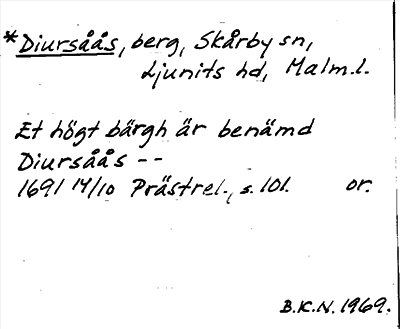 *Diursåås, berg, Skårby sn,
Ljunits hd, Malm.l.
Et högt bärgh är benämd
Diursåås --
1691 14/10 Prästrel., s. 101. or.
B.K.N. 1969.